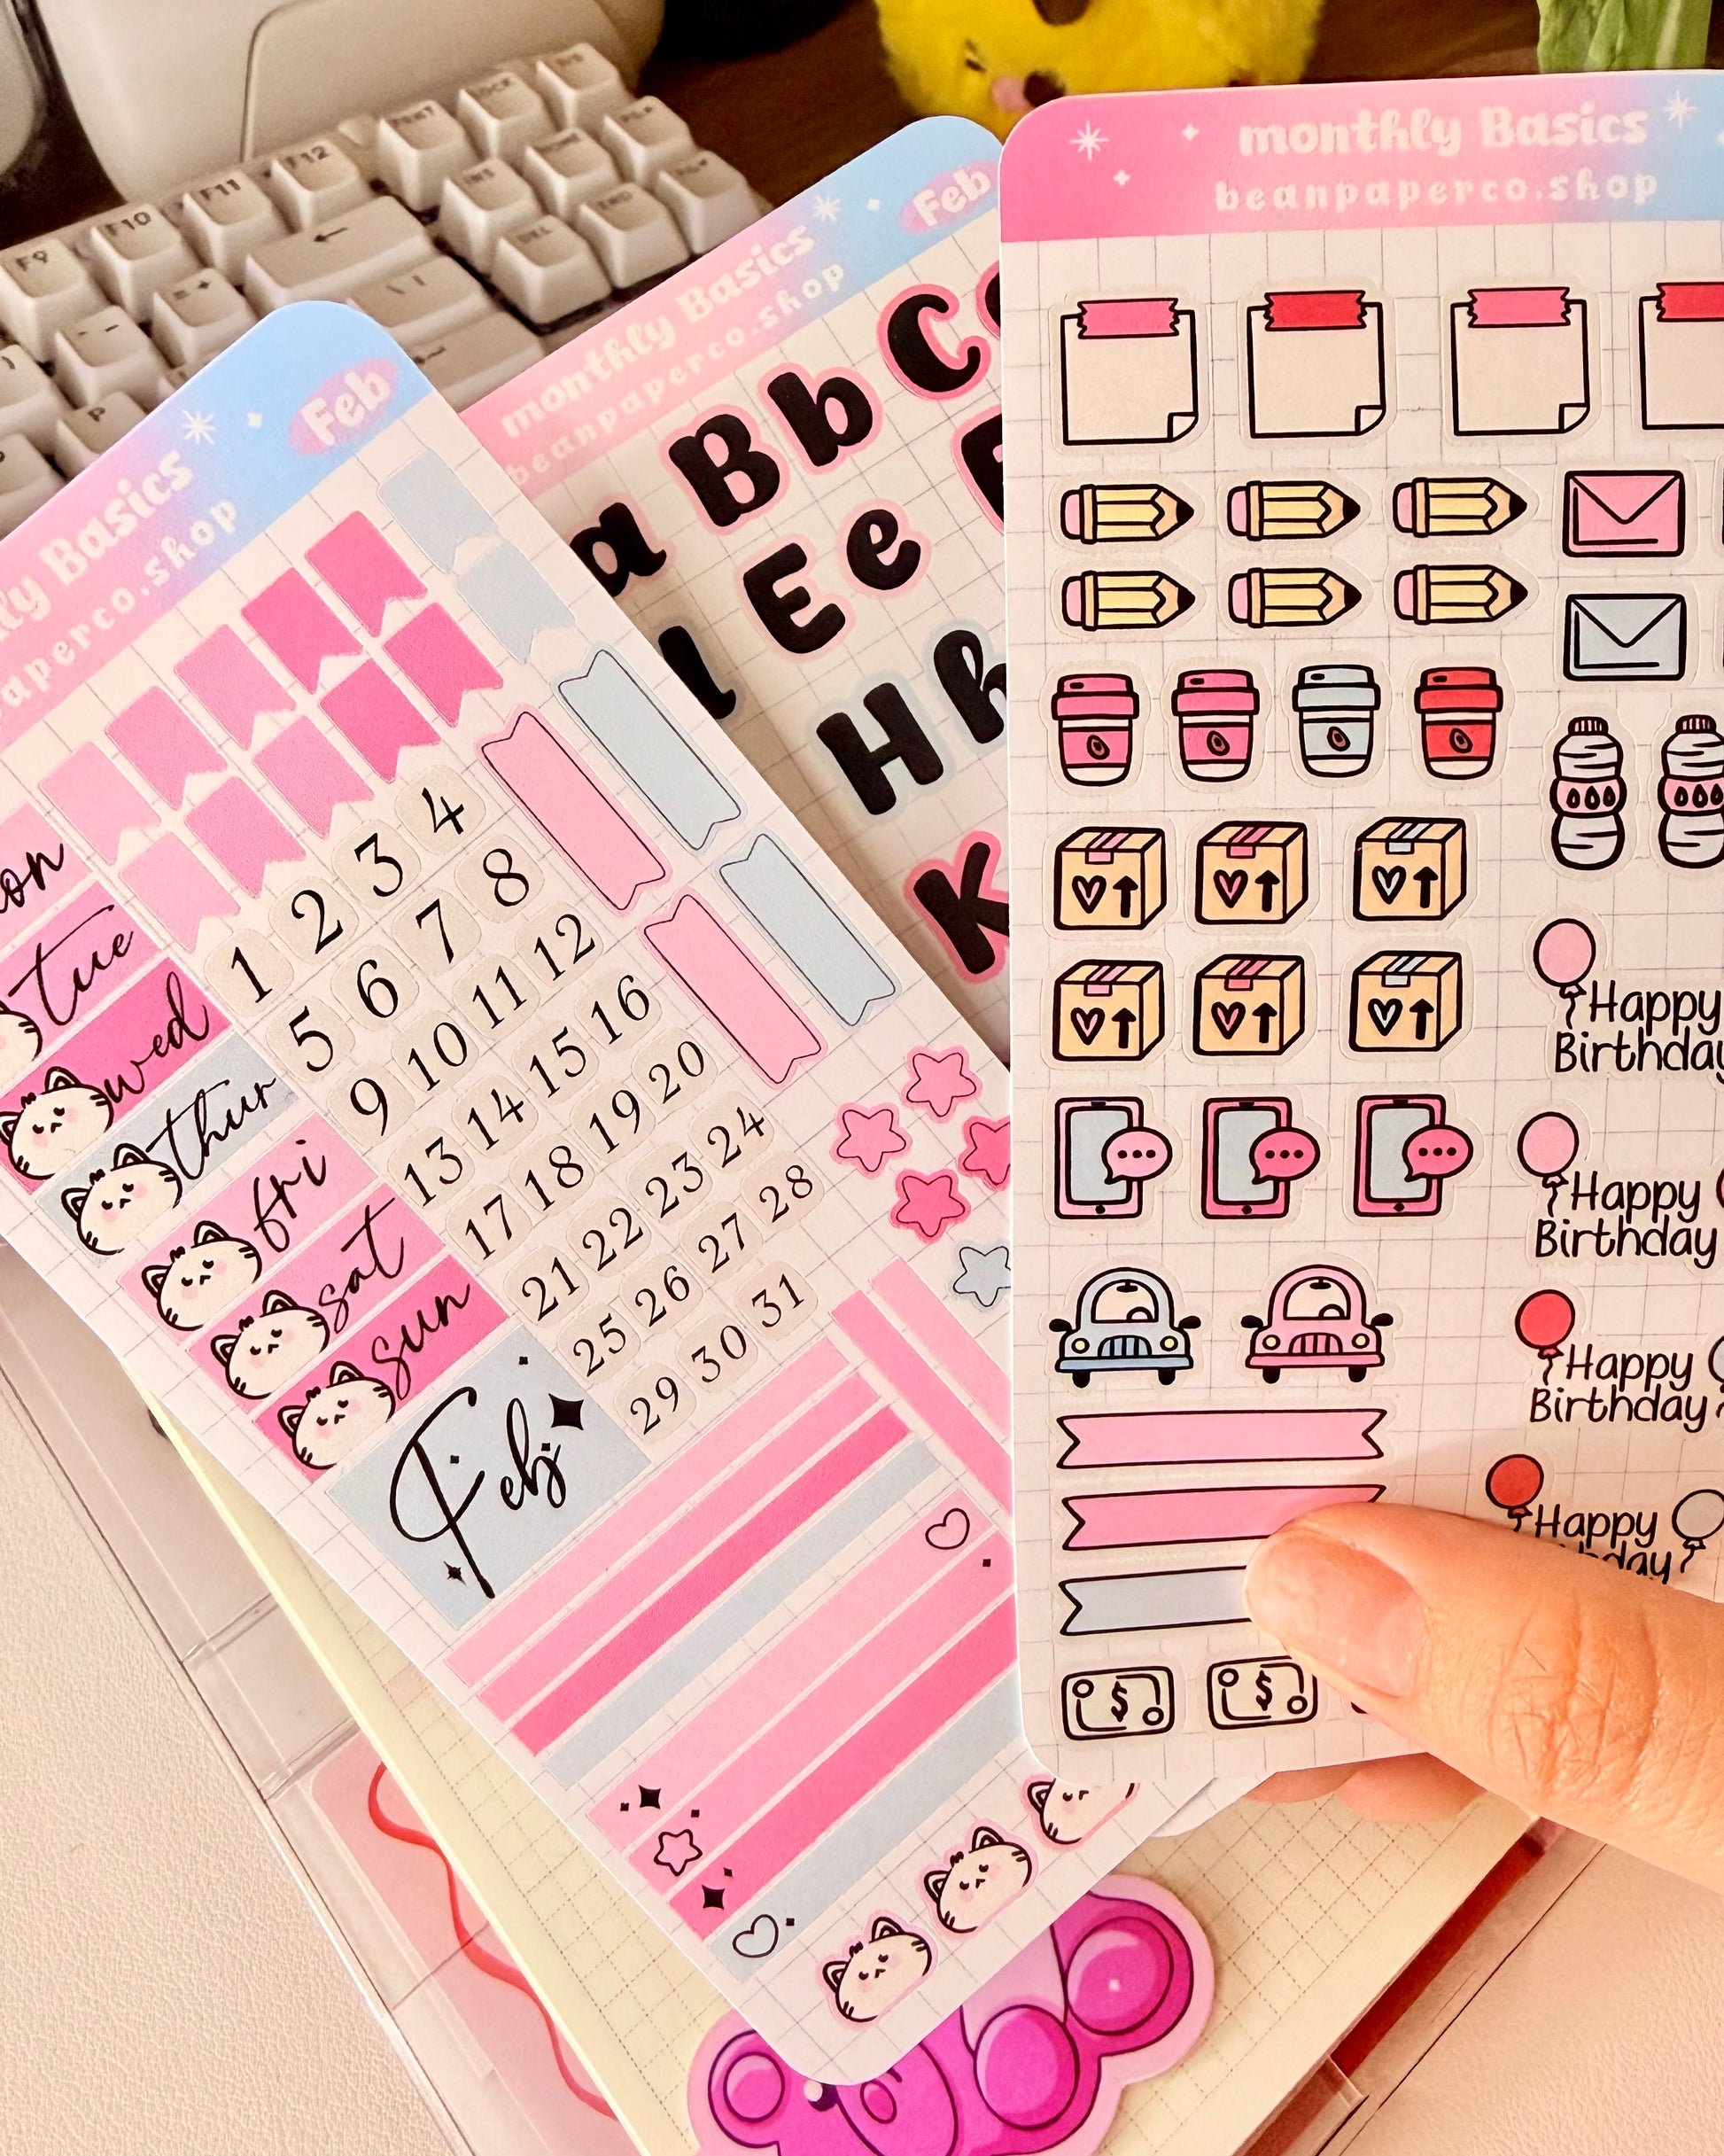 F9
F10
F11
F12
DEL
P
monthly Basics
beanpaperco.shop
Feb
Basics
aperco.shop
Feb
tue
wed
thur
fri
sat
sun
Feb
1 2 3 4
5 6 7 8
9 10 11 12
13 14 15 16
17 18 19 20
21 22 23 24
25 26 27 28
29 30 31
a Bb C
Ee
H h
K
monthly Basics
beanpaperco.shop
Happy
Birthday
Happy
Birthday
Happy
Birthday
Happy
$ $